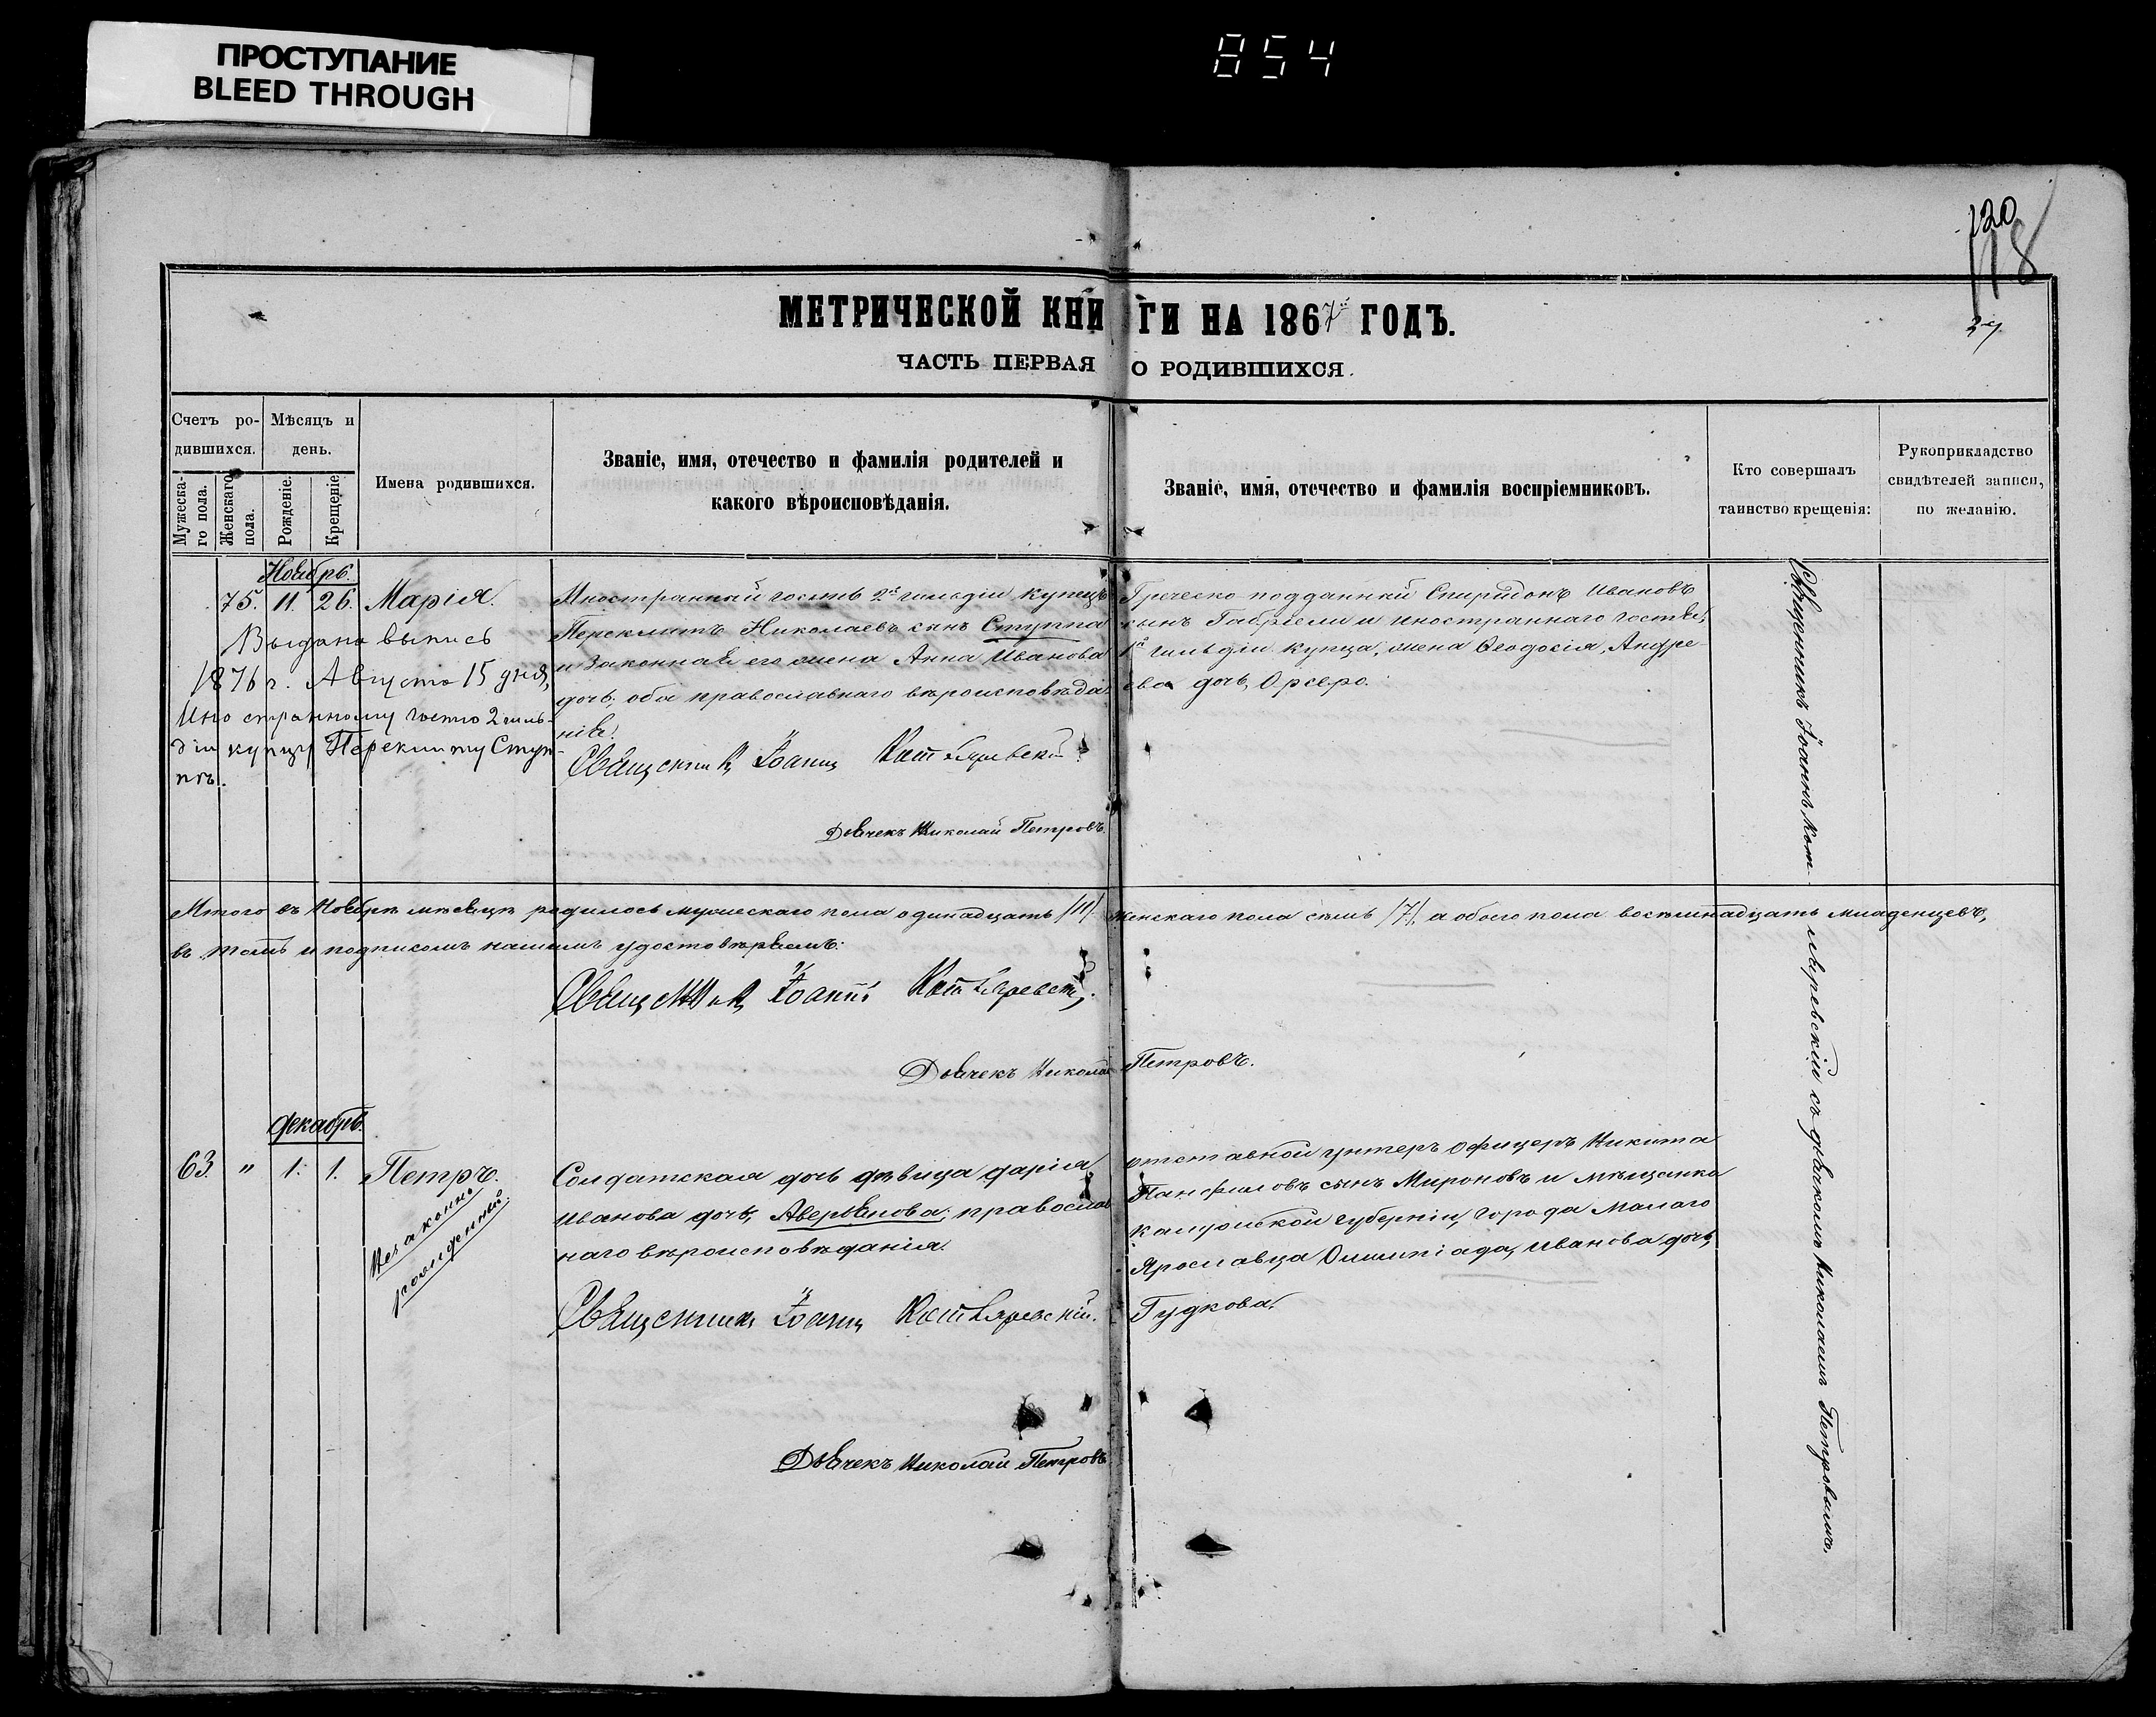 ПРОСТУПАНИЕ
BLEED THROUGH
854
120
118
МЕТРИЧЕСКОЙ КНИГИ НА 1867й ГОДЪ.
ЧАСТЬ ПЕРВАЯ О РОДИВШИХСЯ.
Счетъ ро-
дившихся.
Мѣсяцъ и
день.
Мужеска-
го пола.
Женскаго
пола.
Рожденіе.
Крещеніе
Имена родившихся.
Званіе, имя, отечество и фамилія родителей и
какого вѣроисповѣданія.
Званіе, имя, отечество и фамилія воспріемниковъ.
Кто совершалъ
таинство крещенія:
Рукоприкладство
свидѣтелей записи,
по желанію.
Ноябрь.
75. 11. 26. Марія.
Выдана выпись
1876 г. Августа 15 дня,
Иностранному гостю 2 гиль-
діи купцу Переклиту Ступ-
пѣ.
Иностранный гость 2й гильдіи купецъ
Переклитъ Николаевъ сынъ Ступпа
и законная его жена Анна Иванова
дочь, оба православнаго вѣроисповѣда-
нія.
Священникъ Іоаннъ Котляревскій
Дьячекъ Николай Петровъ.
Греческо подданный Спиридонъ Ивановъ
сынъ Габріели и иностраннаго гостя,
1й гильдіи купца, жена Ѳеодосія, Андре-
ева дочь,
Итого въ Ноябрѣ мѣсяцѣ родилось мужескаго пола одинадцать /11/. Женскаго пола семь /7/, а обоего пола восемнадцать младенцевъ,
въ томъ и подписомъ нашимъ удостовѣряемъ:
Священникъ Іоаннъ Котляревскій.
Дьячекъ Николай Петровъ.
Декабрь.
63. " 1. 1. Петръ.
Незаконно
рожденный.
Солдатская дочь дѣвица Дарія
Иванова дочь, Аверьянова, православ
наго вѣроисповѣданія.
Священникъ Іоаннъ Котляревскій.
Дьячекъ Николай Петровъ
отставной унтеръ офицеръ Никита
Панфиловъ сынъ Мироновъ и мѣщанка
Калужской губерніи, города Малаго
Ярославца Олимпіада, Иванова дочь,
Гудкова.
Священникъ Іоаннъ Котляревскій съ дьячкомъ Николаемъ Петровымъ.